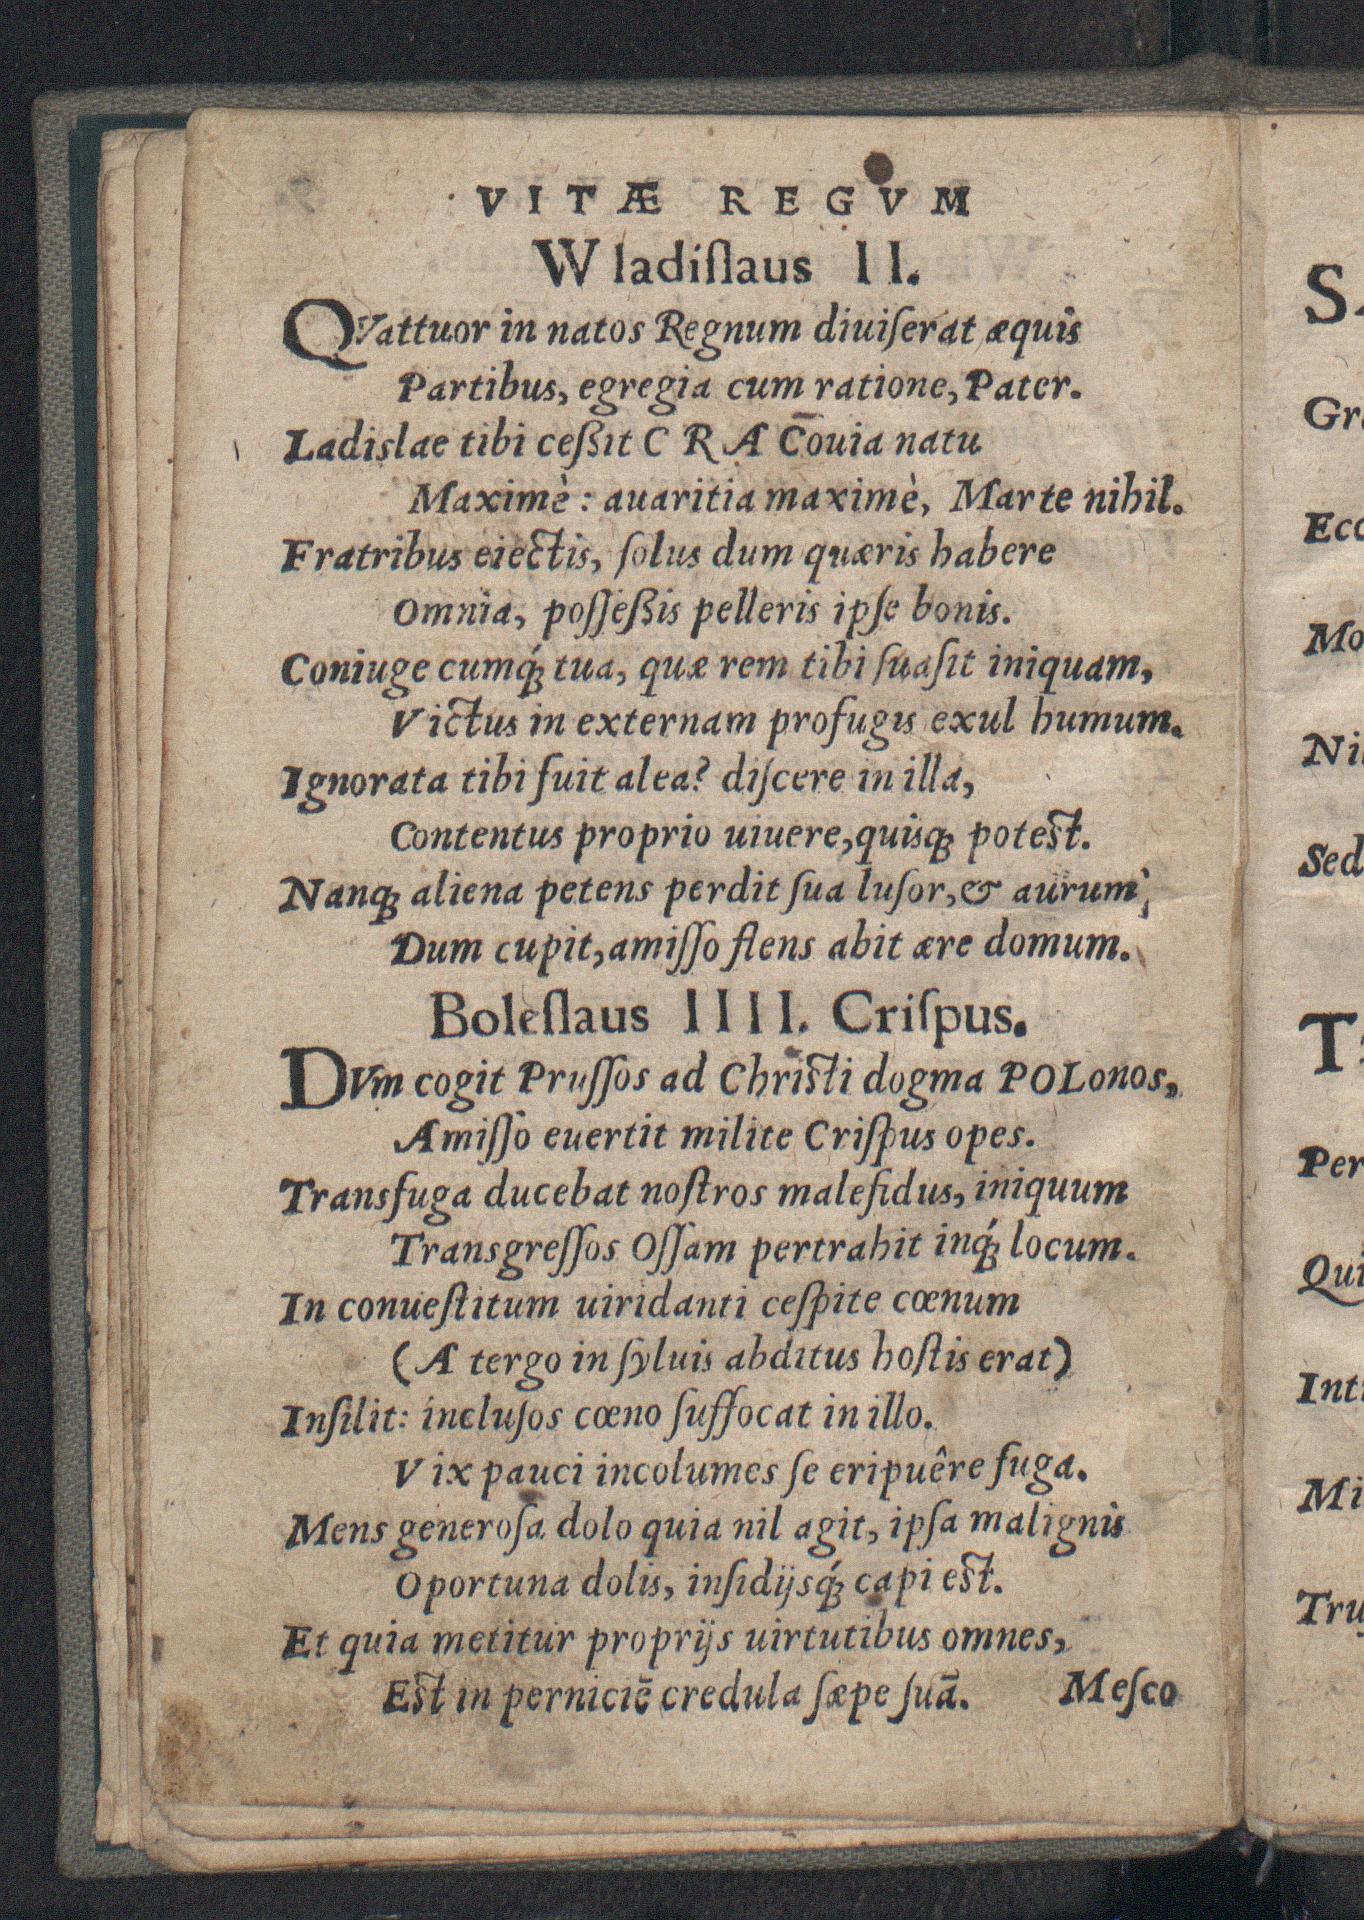 VITÆ REGVM
Wladiſlaus II.
QVattuor in natos Regnum diuiſerat æquis
Partibus, egregia cum ratione, Pater.
Ladislae tibi ceßit C R A C̄ouia natu
Maximè: auaritia maximè, Marte nihil.
Fratribus eiectis, ſolus dum quæris habere
Omnia, poſſeßis pelleris ipſe bonis.
Coniuge cumq́; tua, quæ rem tibi ſuaſit iniquam,
Victus in externam profugis exul humum.
Ignorata tibi fuit alea? diſcere in illa,
Contentus proprio uiuere, quisq; poteſt.
Nanq; aliena petens perdit ſua luſor, & aurum,
Dum cupit, amiſſo flens abit ære domum.
Boleſlaus IIII. Criſpus.
DVm cogit Pruſſos ad Chriſti dogma POLonos,
Amiſſo euertit milite Criſpus opes.
Transfuga ducebat noſtros malefidus, iniquum
Transgreſſos Oſſam pertrahit inq́; locum.
In conueſtitum uiridanti ceſpite cœnum
(A tergo in ſyluis abditus hoſtis erat)
Inſilit: incluſos cœno ſuffocat in illo.
Vix pauci incolumes ſe eripuêre fuga.
Mens generoſa dolo quia nil agit, ipſa malignis
Oportuna dolis, inſidijsq́; capi eſt.
Et quia metitur proprijs uirtutibus omnes,
Eſt in perniciē credula ſæpe ſuā.
Meſco
Gr
Ecc
Mo
Ni
Sed
Per
Qui
Int
Mi